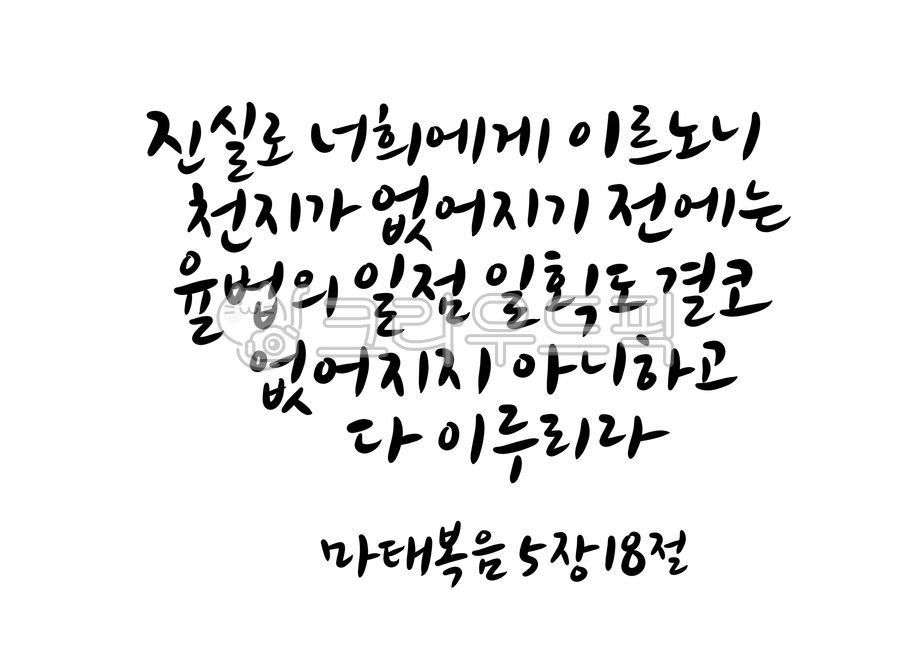 진실로 너희에게 이르노니
천지가 없어지기 전에는
율법의 일점 일획도 결코
없어지지 아니하고
다 이루리라
마태복음 5장 18절
크라우드픽